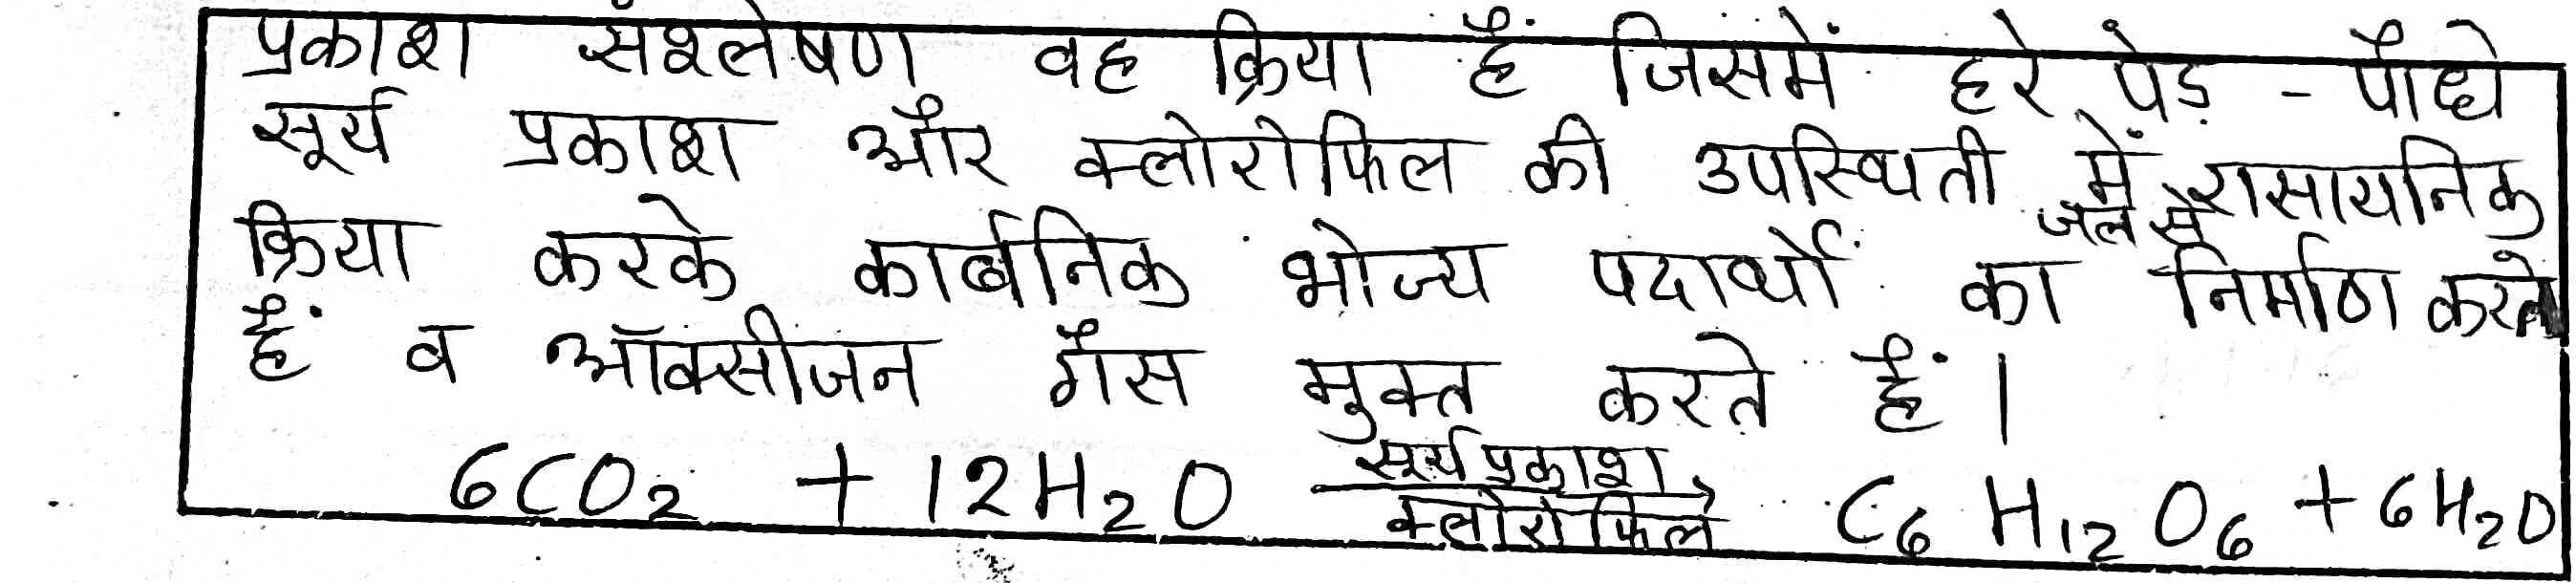 प्रकाश संश्लेषण वह क्रिया हैं जिसमें हरे पेड़ - पौधे
सूर्य प्रकाश और क्लोरोफिल की उपस्थिती में जल से रासायनिक
क्रिया करके कार्बनिक भोज्य पदार्थों का निर्माण करते
हैं व ऑक्सीजन गैस मुक्त करते हैं।
6CO₂ + 12H₂O सूर्य प्रकाश → क्लोरोफिल C₆H₁₂O₆ + 6H₂O